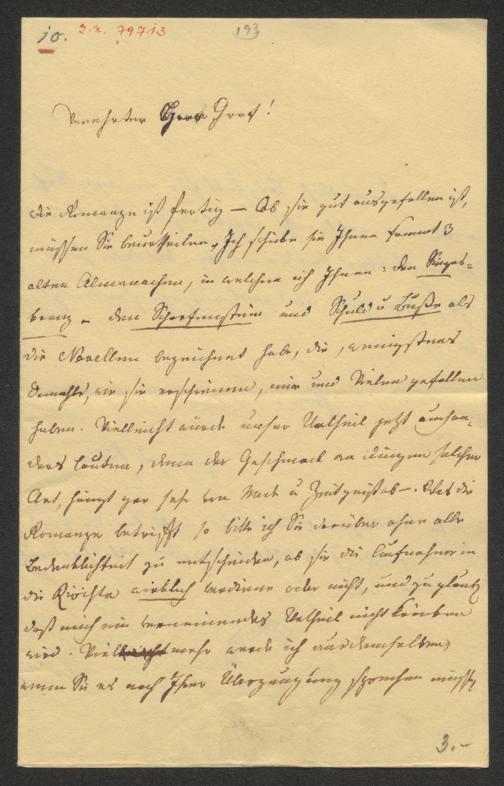 10.
I.N. 79713
193
Verehrter Herr Graf!
die Romanze ist fertig — Ob sie gut ausgefallen ist,
müssen Sie beurtheilen. Ich schicke sie Ihnen sammt 3
alten Almanachen, in welchen ich Ihnen: den Sieges-
kranz – den Scharfenstein und Schuld u Buße als
die Novellen bezeichnet habe, die, wenigstens
damahls, wie sie erschienen, mir und Vielen gefallen
haben. Vielleicht würde unser Urtheil jetzt
anders lauten, denn der Geschmack an Dingen solcher
Art, hängt gar sehr von Mode u Zeitgeist ab –. Was die
Romanze betrifft so bitte ich Sie darüber ohne alle
Bedenklichkeit zu entscheiden, ob sie die Aufnahme in
die wirklich verdiene oder nicht, und zu glauben
daß mich ein verneinendes Urtheil nicht kränken
wird. Vielmehr werde ich aus demselben,
wenn Sie es nach Ihrer Überzeugung sprechen müssen
3.–